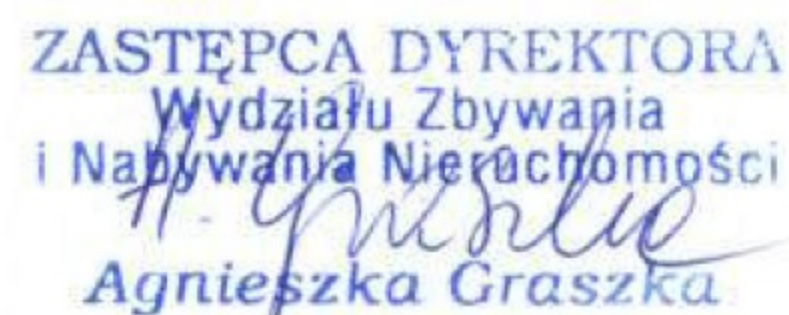 ZASTĘPCA DYREKTORA
Wydziału Zbywania
i Nabywania Nieruchomości
A. Graszka
Agnieszka Graszka